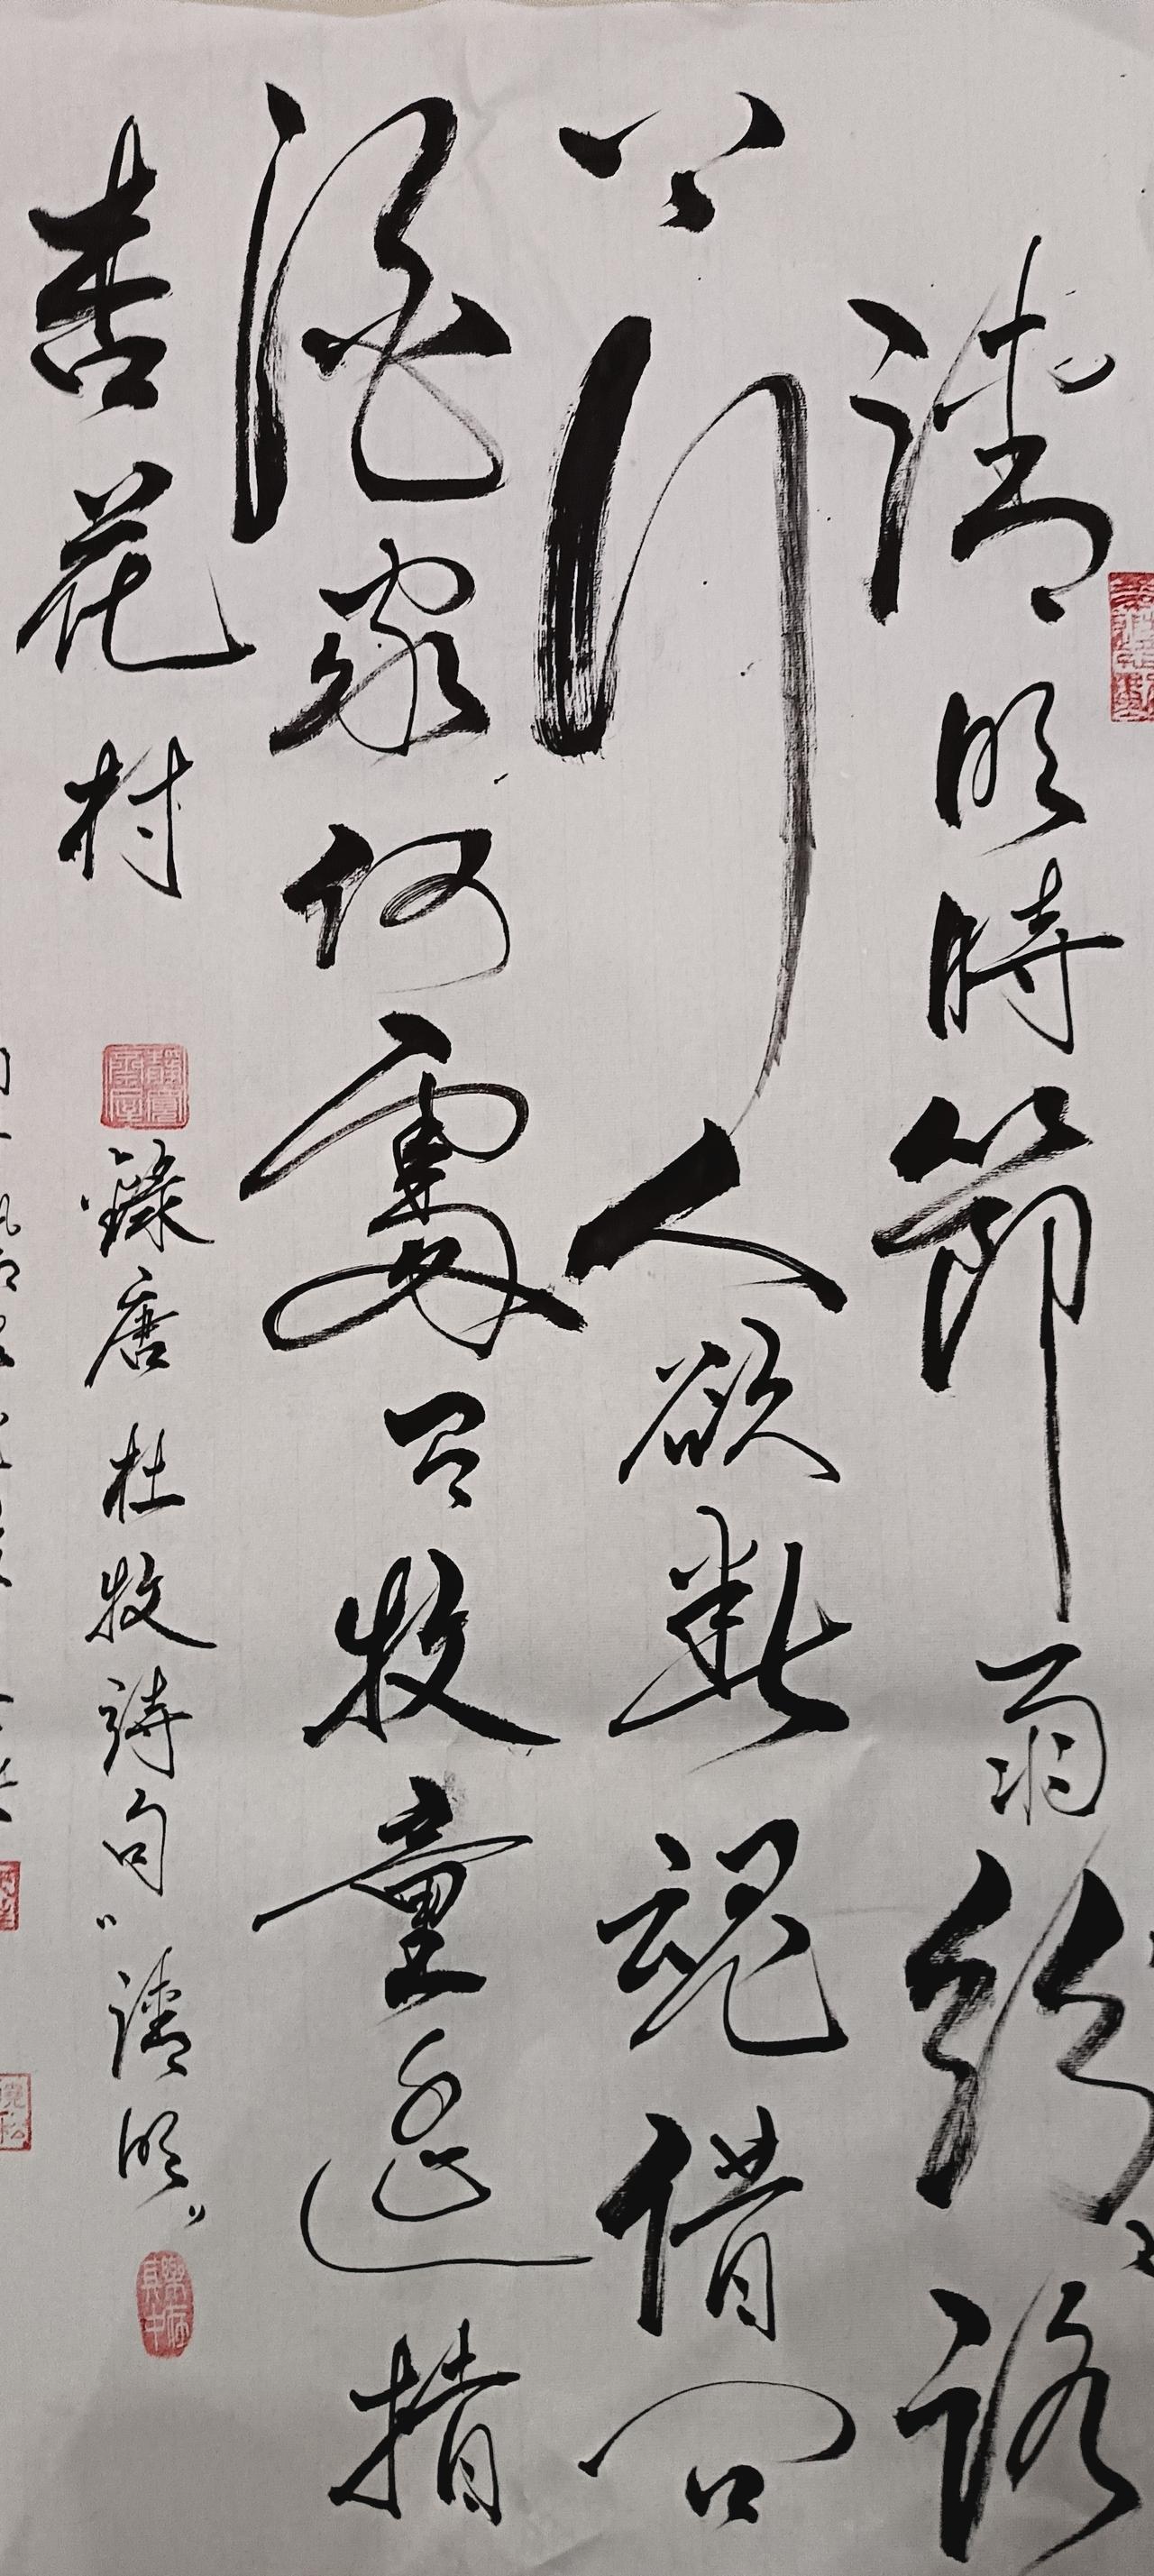 清明時節雨紛紛路
上行人欲斷魂借問
酒家何處有牧童遥指
杏花村
錄唐杜牧詩句"清明"